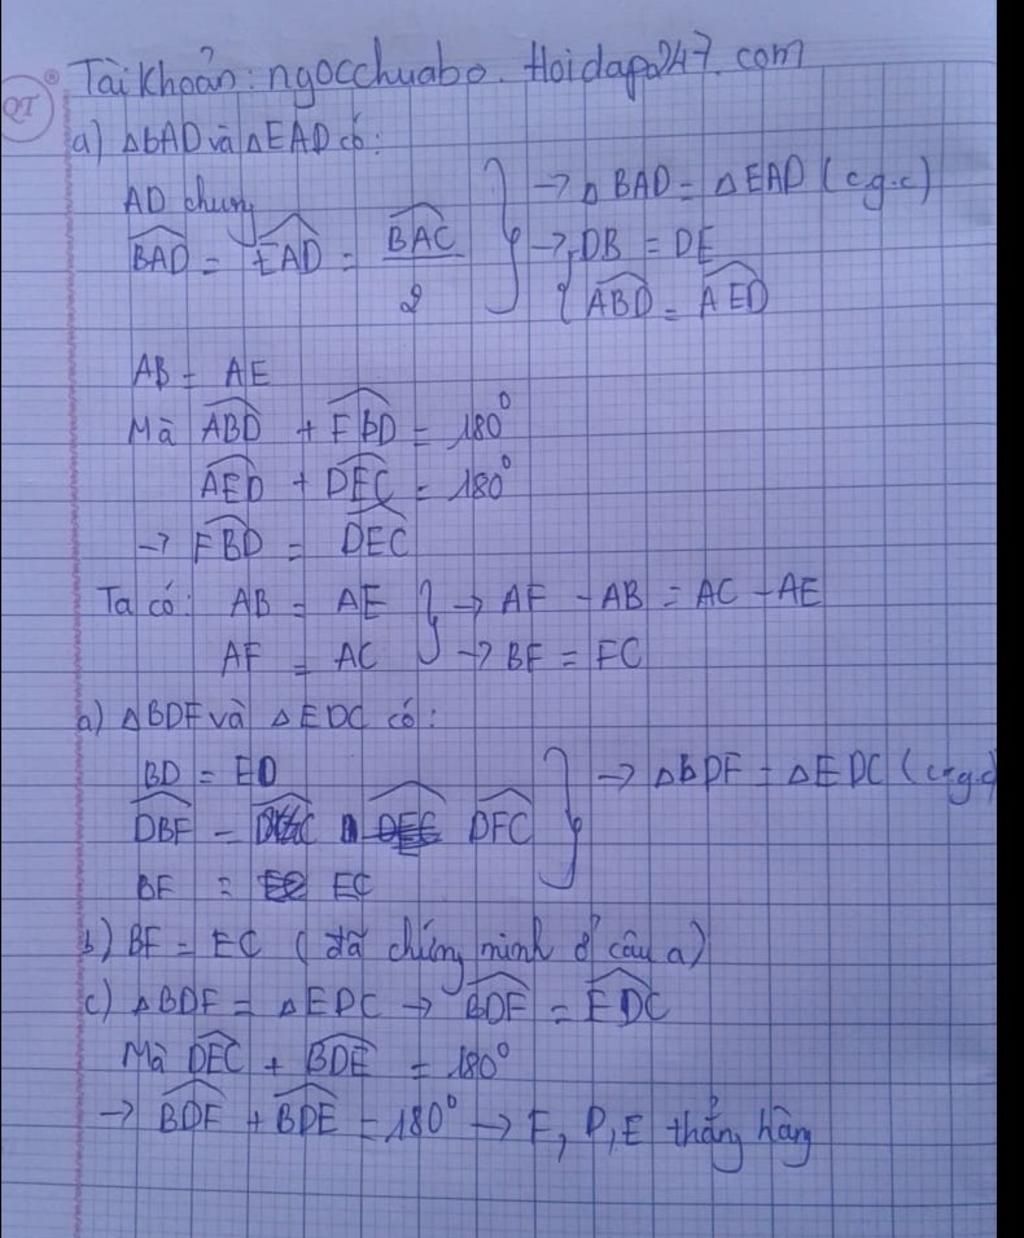 Tài khoản: ngocchuabo. Hoidap247.com
QT
a) ΔbAD và ΔEAD có:
AD chung
→ Δ BAD = Δ EAD (c.g.c)
BAD = EAD = BAC / 2
→ DB = DE
ABD = AED
AB = AE
Mà ABD + FBD = 180°
AED + DEC = 180°
→ FBD = DEC
Ta có: AB = AE → AF - AB = AC - AE
AF = AC → BF = EC
a) ΔBDF và ΔEDC có:
BD = ED → ΔBDF = ΔEDC (c.g.c)
DBF = DEC
BF = EC
b) BF = EC (đã chứng minh ở câu a)
c) ΔBDF = ΔEDC → BDF = EDC
Mà DEC + BDE = 180°
→ BDF + BDE = 180° → F, D, E thẳng hàng